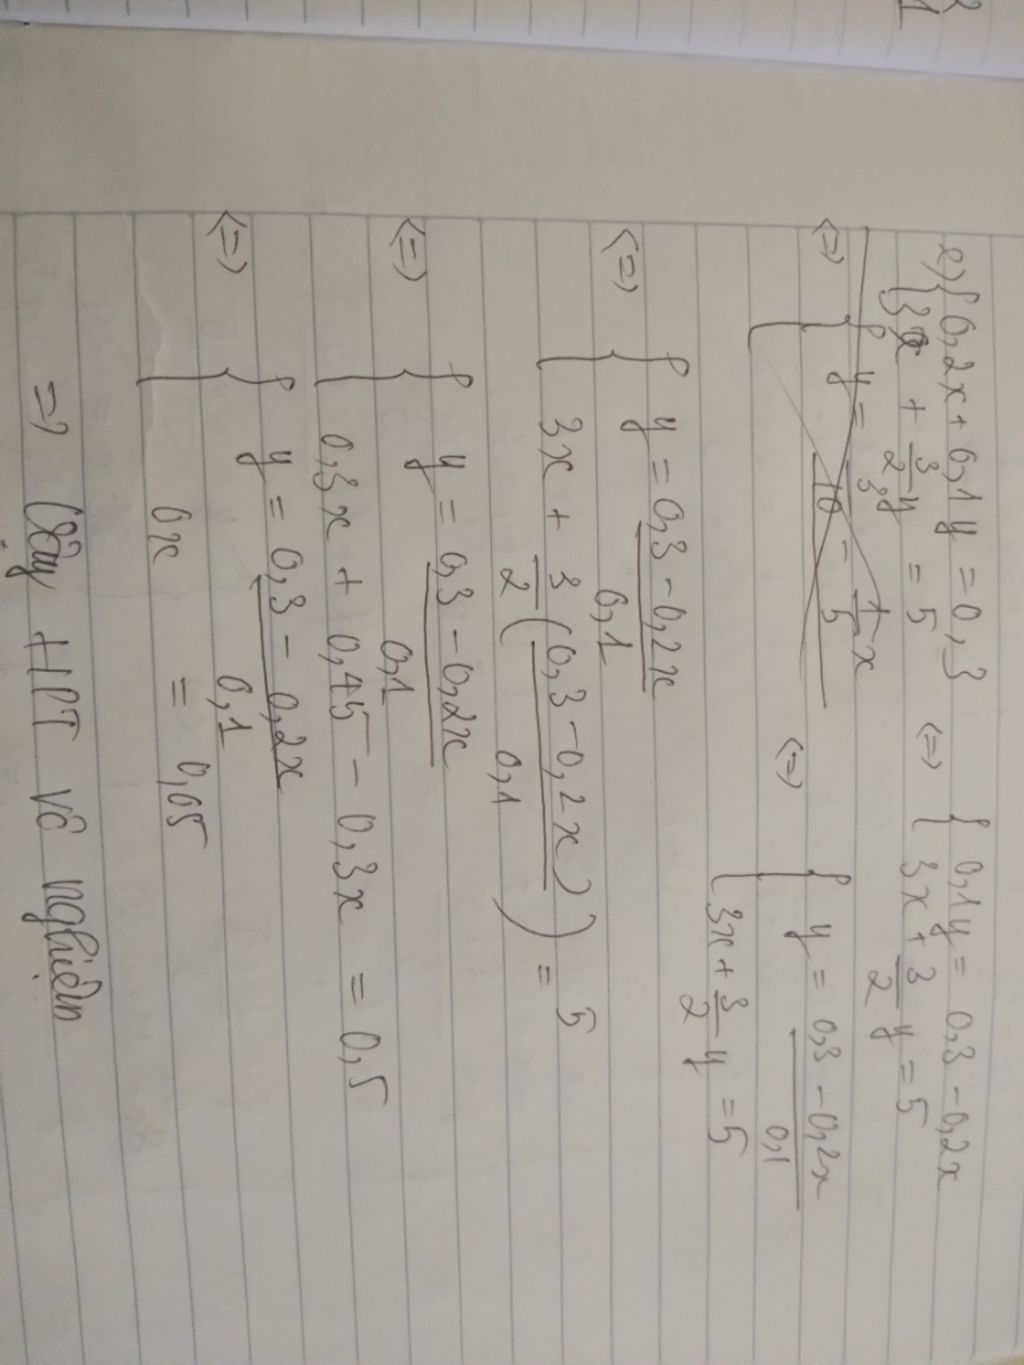 e) { 0,2x + 0,1y = 0,3 <=> { 0,1y = 0,3 - 0,2x
{ 3x + 3/2 y = 5 { 3x + 3/2 y = 5
<=> { y = <=> { y = (0,3 - 0,2x)/0,1
{ 3x + 3/2 y = 5
<=> { y = (0,3 - 0,2x)/0,1
{ 3x + 3/2 ((0,3 - 0,2x)/0,1) = 5
<=> { y = (0,3 - 0,2x)/0,1
{ 0,3x + 0,45 - 0,3x = 0,5
<=> { y = (0,3 - 0,2x)/0,1
{ 0x = 0,05
=> Vậy HPT vô nghiệm